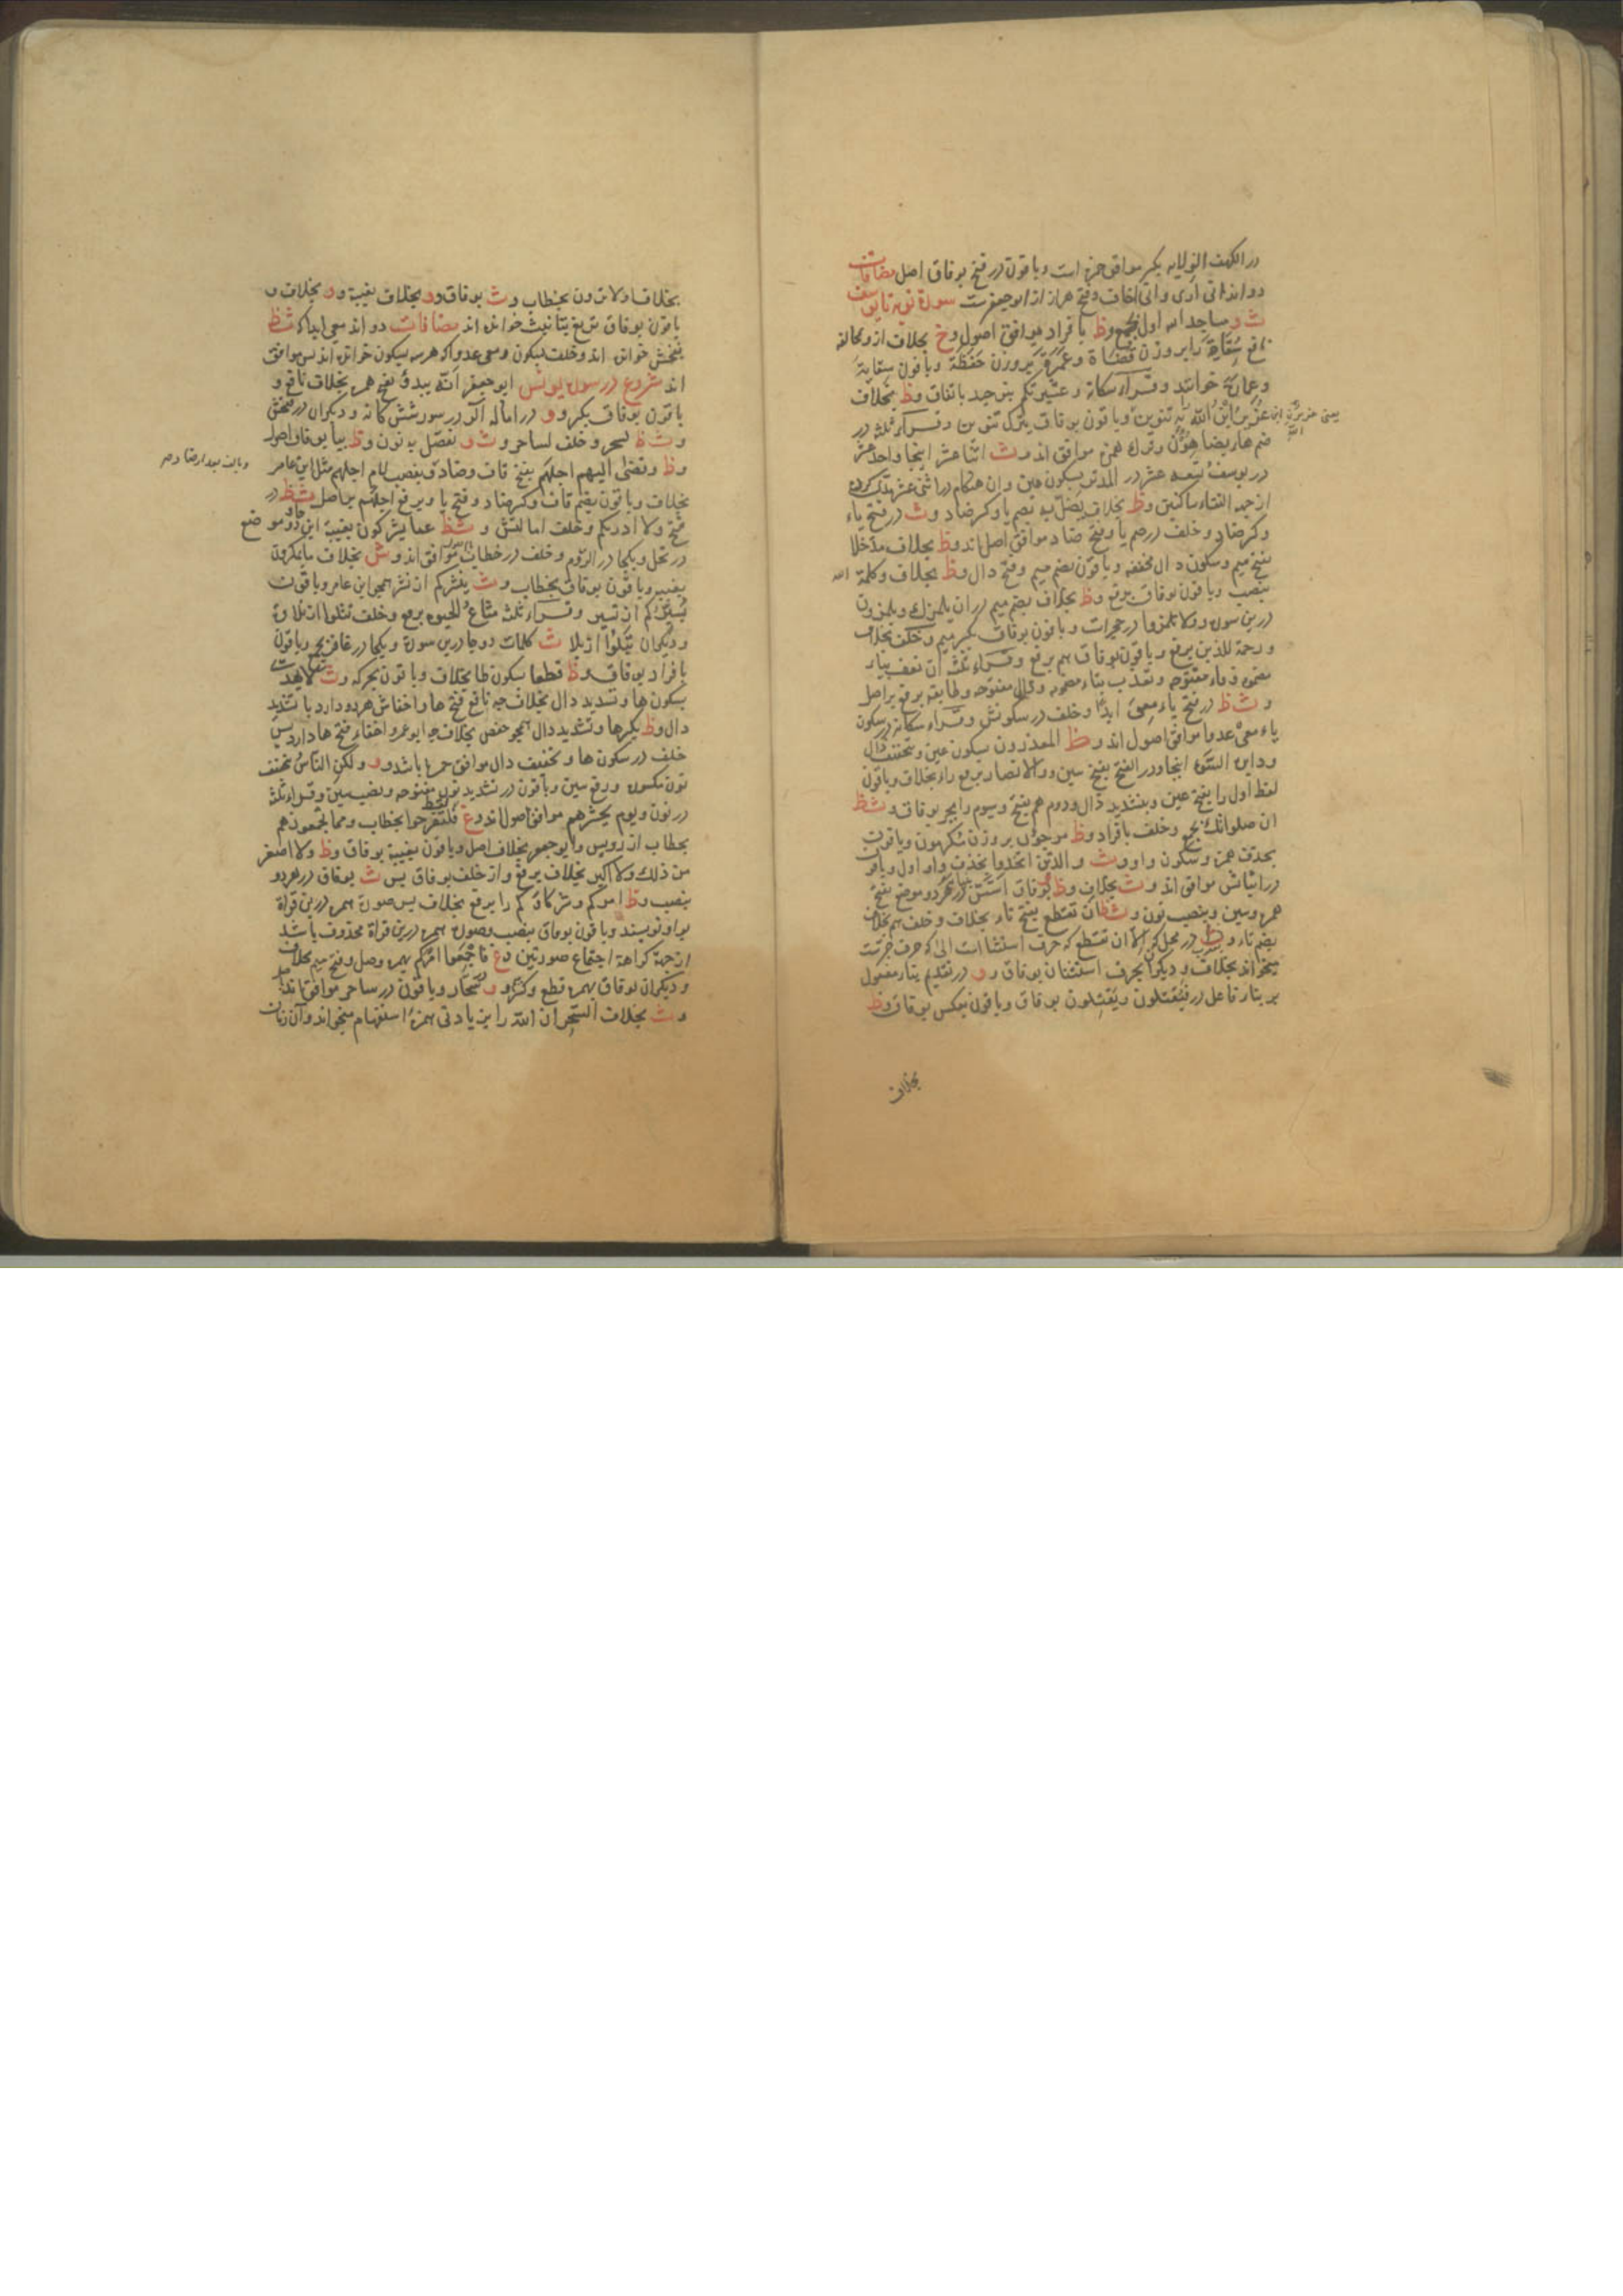 در الکهف الولایه بکسر موافق حمزه است وباقون در فتح بوفاق اصل مضافات
دو اند انی اری وانی اخاف وفتح هر از ان ابوجعفرست سورة توبه تا یوسف
ث و مساجد الله اول بجمع وظ بافراد موافق اصول وخ بخلاف از
نافع سُقَاةَ را بر وزن قُضَاة وعَمَرَة بر وزن حَفَظَة وباقون سقایة
وعمارة خوانند وقراء سکانه وعشیرتکم بتوحید باتفاق وظ بخلاف
عُزَیرٌ ابْنُ اللّه به تنوین وباقون بوفاق بترک تنوین وقراء ثلثه در
ضم هاء یضاهِؤُن وترک همزه موافق اند وث اثنا عشر اینجا واحد عشر
در یوسف وتسعه عشر در المدثر بسکون عین وان هنکام در اثنی عشر
از جهة التقاء ساکنین وظ بخلاف یُضِلّ به بضم یا وکسر ضاد وث در فتح یاء
وکسر ضاد وخلف در ضم یا وفتح ضاد موافق اصل اند وظ بخلاف مدخلا
بفتح میم وسکون دال مخففه وباقون بضم میم وفتح دال وظ بخلاف وکلمة الله
بنصب وباقون بوفاق برفع وظ بخلاف بضم میم در ان یلمزک ویلمزون
درین سوره ولا تلمزوا در حجرات وباقون بوفاق بکسر میم وخلف بخلاف
ورحمة للذین برفع وباقون بوفاق هم برفع وقراء ثلث ان نعف بیاء
مضمومه وفاء مفتوحه وتعذب بتاء مضمومه وذال مفتوحه وطایفة برفع بر اصل
و ث ظ در فتح یاء معِیَ ابدًا وخلف در سکونش وقراء سکانه در سکون
یاء معیْ عدوا موافق اصول اند وظ المعذرون بسکون عین وتخفیف ذال
ودایره السَّوء اینجا ودر الفتح بفتح سین والانصار برفع راء بخلاف وباقون
لفظ اول را بفتح عین وبتشدید ذال ودوم هم بفتح وسیوم را بجر بوفاق و ث ظ
ان صلواتک بجمع وخلف بافراد وظ مرجؤن بر وزن مُکرهون وباقون
بحذف همزه وسکون واو وث والذین اتخذوا بحذف واو اول وباقون
در اثباتش موافق اند وث بخلاف وظ بوفاق اَسَّسَ بنیانه در هردو موضع بفتح
همزه وسین وبنصب نون وث ظ ان تقطع بفتح تاء بخلاف وخلف هم بخلاف
بضم تاء و در محل کن اِلّا ان تقطع که حرف استثنا است الی که حرف جرست
میخواند بخلاف ودیکران بحرف استثنا ان بوفاق وو در تقدیم بناء مفعول
بر بناء فاعل در فیُقتلون ویَقتلون بوفاق وباقون بعکس بوفاق وظ
بخلاف
یعنی عزیر ابن الله
بخلاف اولا ترون بخطاب وث بوفاق وو بخلاف بغیبة وو بخلاف و
باقون بوفاق تزیغ بتانیث خوانده اند مضافات دو اند معی ابدا که ث ظ
بفتحش خوانده اند وخلف بسکون ومعی عدوا که هر سه بسکون خوانده اند پس موافق
اند شروع در سوره یونس ابوجعفر اَنّه یبدؤ بفتح همزه بخلاف نافع و
باقون بوفاق بکسر وو در اماله الر در سور شش کانه ودیکران در فتحش
و ث ظ لسحر وخلف لساحر و ث و نفصّل به نون وظ بیا بوفاق اصول
وظ وقضی الیهم اجلهم بفتح قاف وضاد وبنصب لام اجلهم مثل ابن عامر
بخلاف وباقون بضم قاف وکسر ضاد وفتح یا وبرفع اجلُهم بر اصل ث ظ در
فتح ولا ادریکم وخلف امالتش و ث ظ عما یشرکون بغیبة این دو موضع
در نحل ویکجا در الروم وخلف در خطاب موافق اند وش بخلاف ما یمکرون
بغیبه وباقون بوفاق بخطاب وث ینشرکم از نشر همچو ابن عامر وباقون
یُسَیّرُکم از تسییر وقراء ثلث متاعُ الحیوه برفع وخلف تتلوا از تلاوة
ودیکران تبلوا از بلا ث کلمات دوجا درین سورة ویکجا در غافر بجمع وباقون
بافراد بوفاق وظ قطعا بسکون طا بخلاف وباقون بحرکه وث لا یهدی
بسکون ها وتشدید دال بخلاف چه نافع فتح ها واخفاش هردو دارد با تشدید
دال وظ بکسر ها وتشدید دال همچو حفص بخلاف چه ابوعمرو اخفاء فتح ها دارد پس
خلف در سکون ها وتخفیف دال موافق حمزه باشد وو ولکنِ الناسُ بتخفیف
نون مکسوره ورفع سین وباقون در تشدید نون مفتوحه ونصب سین وقراء ثلث
در نون ویوم یحشرهم موافق اصول اند وغ فلتفرحوا بخطاب ومما یجمعون هم
بخطاب از رویس وابوجعفر بخلاف اصل وباقون بغیبة بوفاق وظ ولا اصغر
من ذلک ولا اکبر بخلاف برفع وان خلف بوفاق پس ث بوفاق در هردو
بنصب وظ امرکم وشرکاؤکم را برفع بخلاف پس صورة همزه درین قراة
بواو نویسند وباقون بوفاق بنصب وصورة همزه درین قراة محذوف باشد
از جهة کراهة اجتماع صورتین وغ فاجْمَعوا امرکم بهمزه وصل وفتح میم بخلاف
ودیکران بوفاق بهمزه قطع وکسر وو سحّار وباقون در ساحر موافق اند
و ث بخلاف السّحر ان اللّه را بزیادتی همزه استفهام میخواند وآن زمان